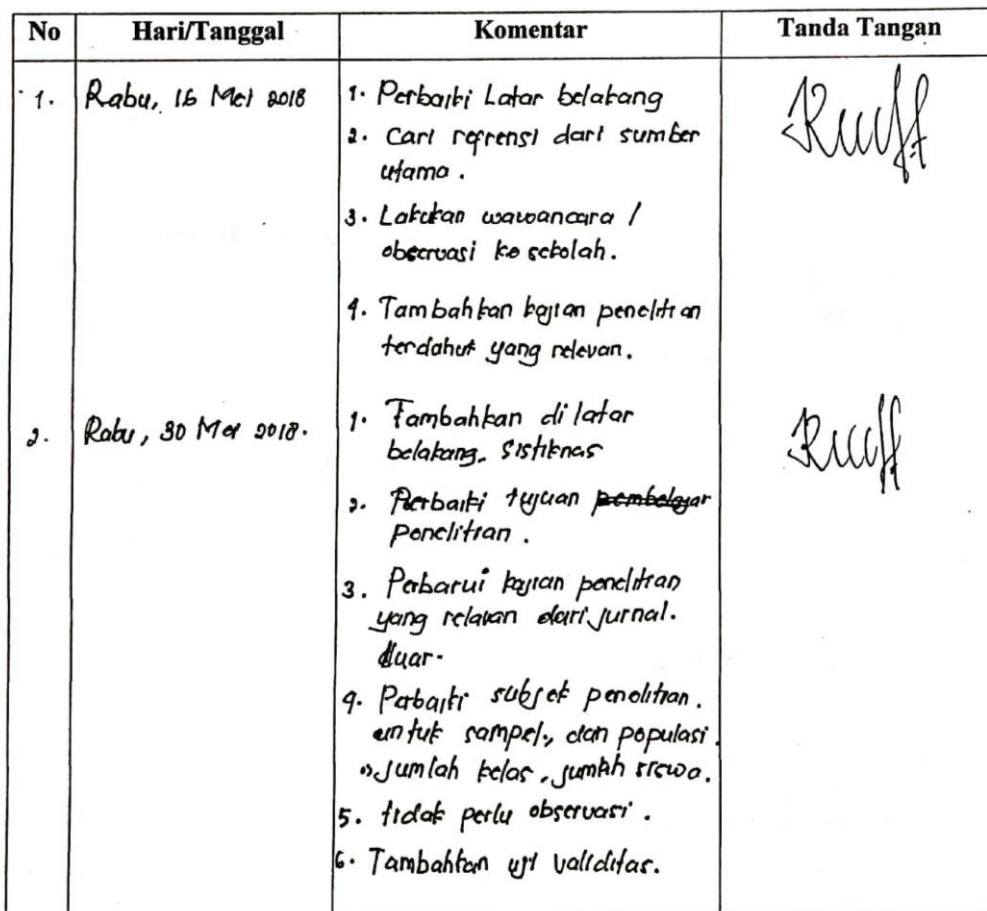 No Hari/Tanggal Komentar Tanda Tangan
1. Rabu, 16 Mei 2018 1. Perbaiki Latar belakang
2. Cari refrensi dari sumber
utama.
3. Lakukan wawancara /
observasi ke sekolah.
4. Tambahkan kajian penelitian
terdahul yang relevan.
2. Rabu, 30 Mei 2018. 1. Tambahkan di latar
belakang. Sistiknas
2. Perbaiki tujuan pembelajar
penelitian.
3. Perbarui kajian penelitian
yang relavan dari jurnal.
luar.
4. Perbaiki subjek penelitian.
untuk sampel, dan populasi.
jumlah kelas, jumlah siswa.
5. tidak perlu observasi.
6. Tambahkan uji validitas.